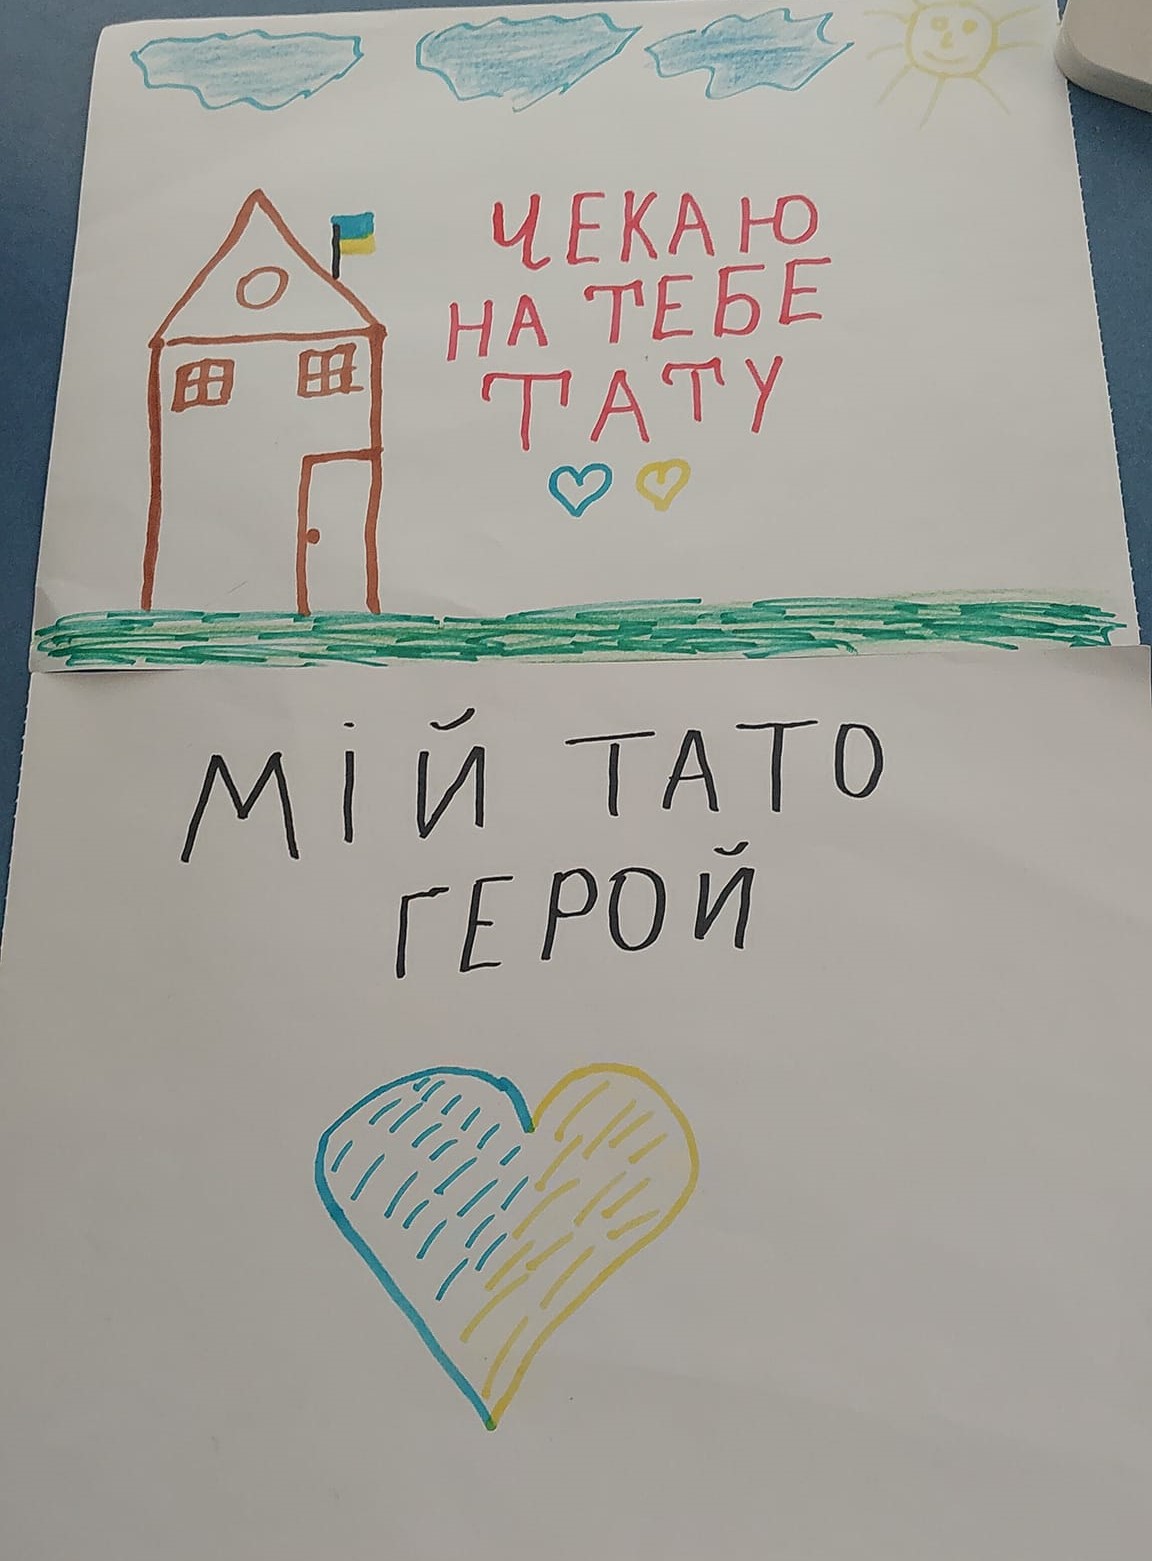 ЧЕКАЮ
НА ТЕБЕ
ТАТУ
МІЙ ТАТО
ГЕРОЙ